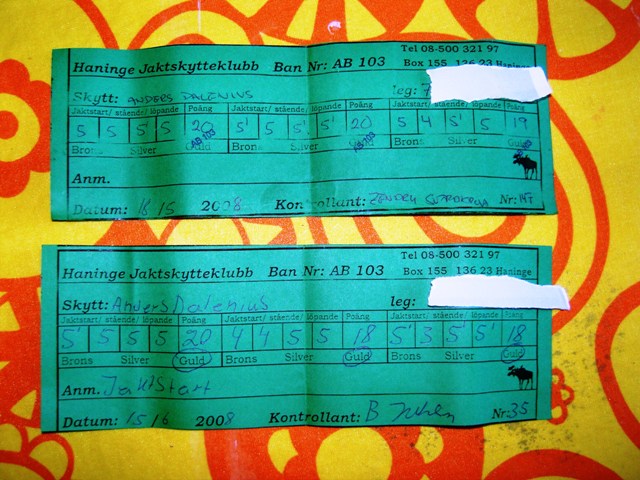 Tel 08-500 321 97
Haninge Jaktskytteklubb Ban Nr: AB 103 Box 155 136 23 Haninge
Skytt: ANDERS DALENIUS leg: 7
Jaktstart/ stående/ löpande Poäng Jaktstart/ stående/ löpande Poäng Jaktstart/ stående/ löpande Poäng
5 5 5 5 20 5 5 5 5 20 5 4 5 5 19
Brons Silver Guld Brons Silver Guld Brons Silver Guld
Anm.
Datum: 18/5 2008 Kontrollant: Nr:
Tel 08-500 321 97
Haninge Jaktskytteklubb Ban Nr: AB 103 Box 155 136 23 Haninge
Skytt: Anders Dalenius leg:
Jaktstart/ stående/ löpande Poäng Jaktstart/ stående/ löpande Poäng Jaktstart/ stående/ löpande Poäng
5 5 5 5 20 4 4 5 5 18 5 3 5 5 18
Brons Silver Guld Brons Silver Guld Brons Silver Guld
Anm. Jaktstart
Datum: 15/6 2008 Kontrollant: B Nr: 35